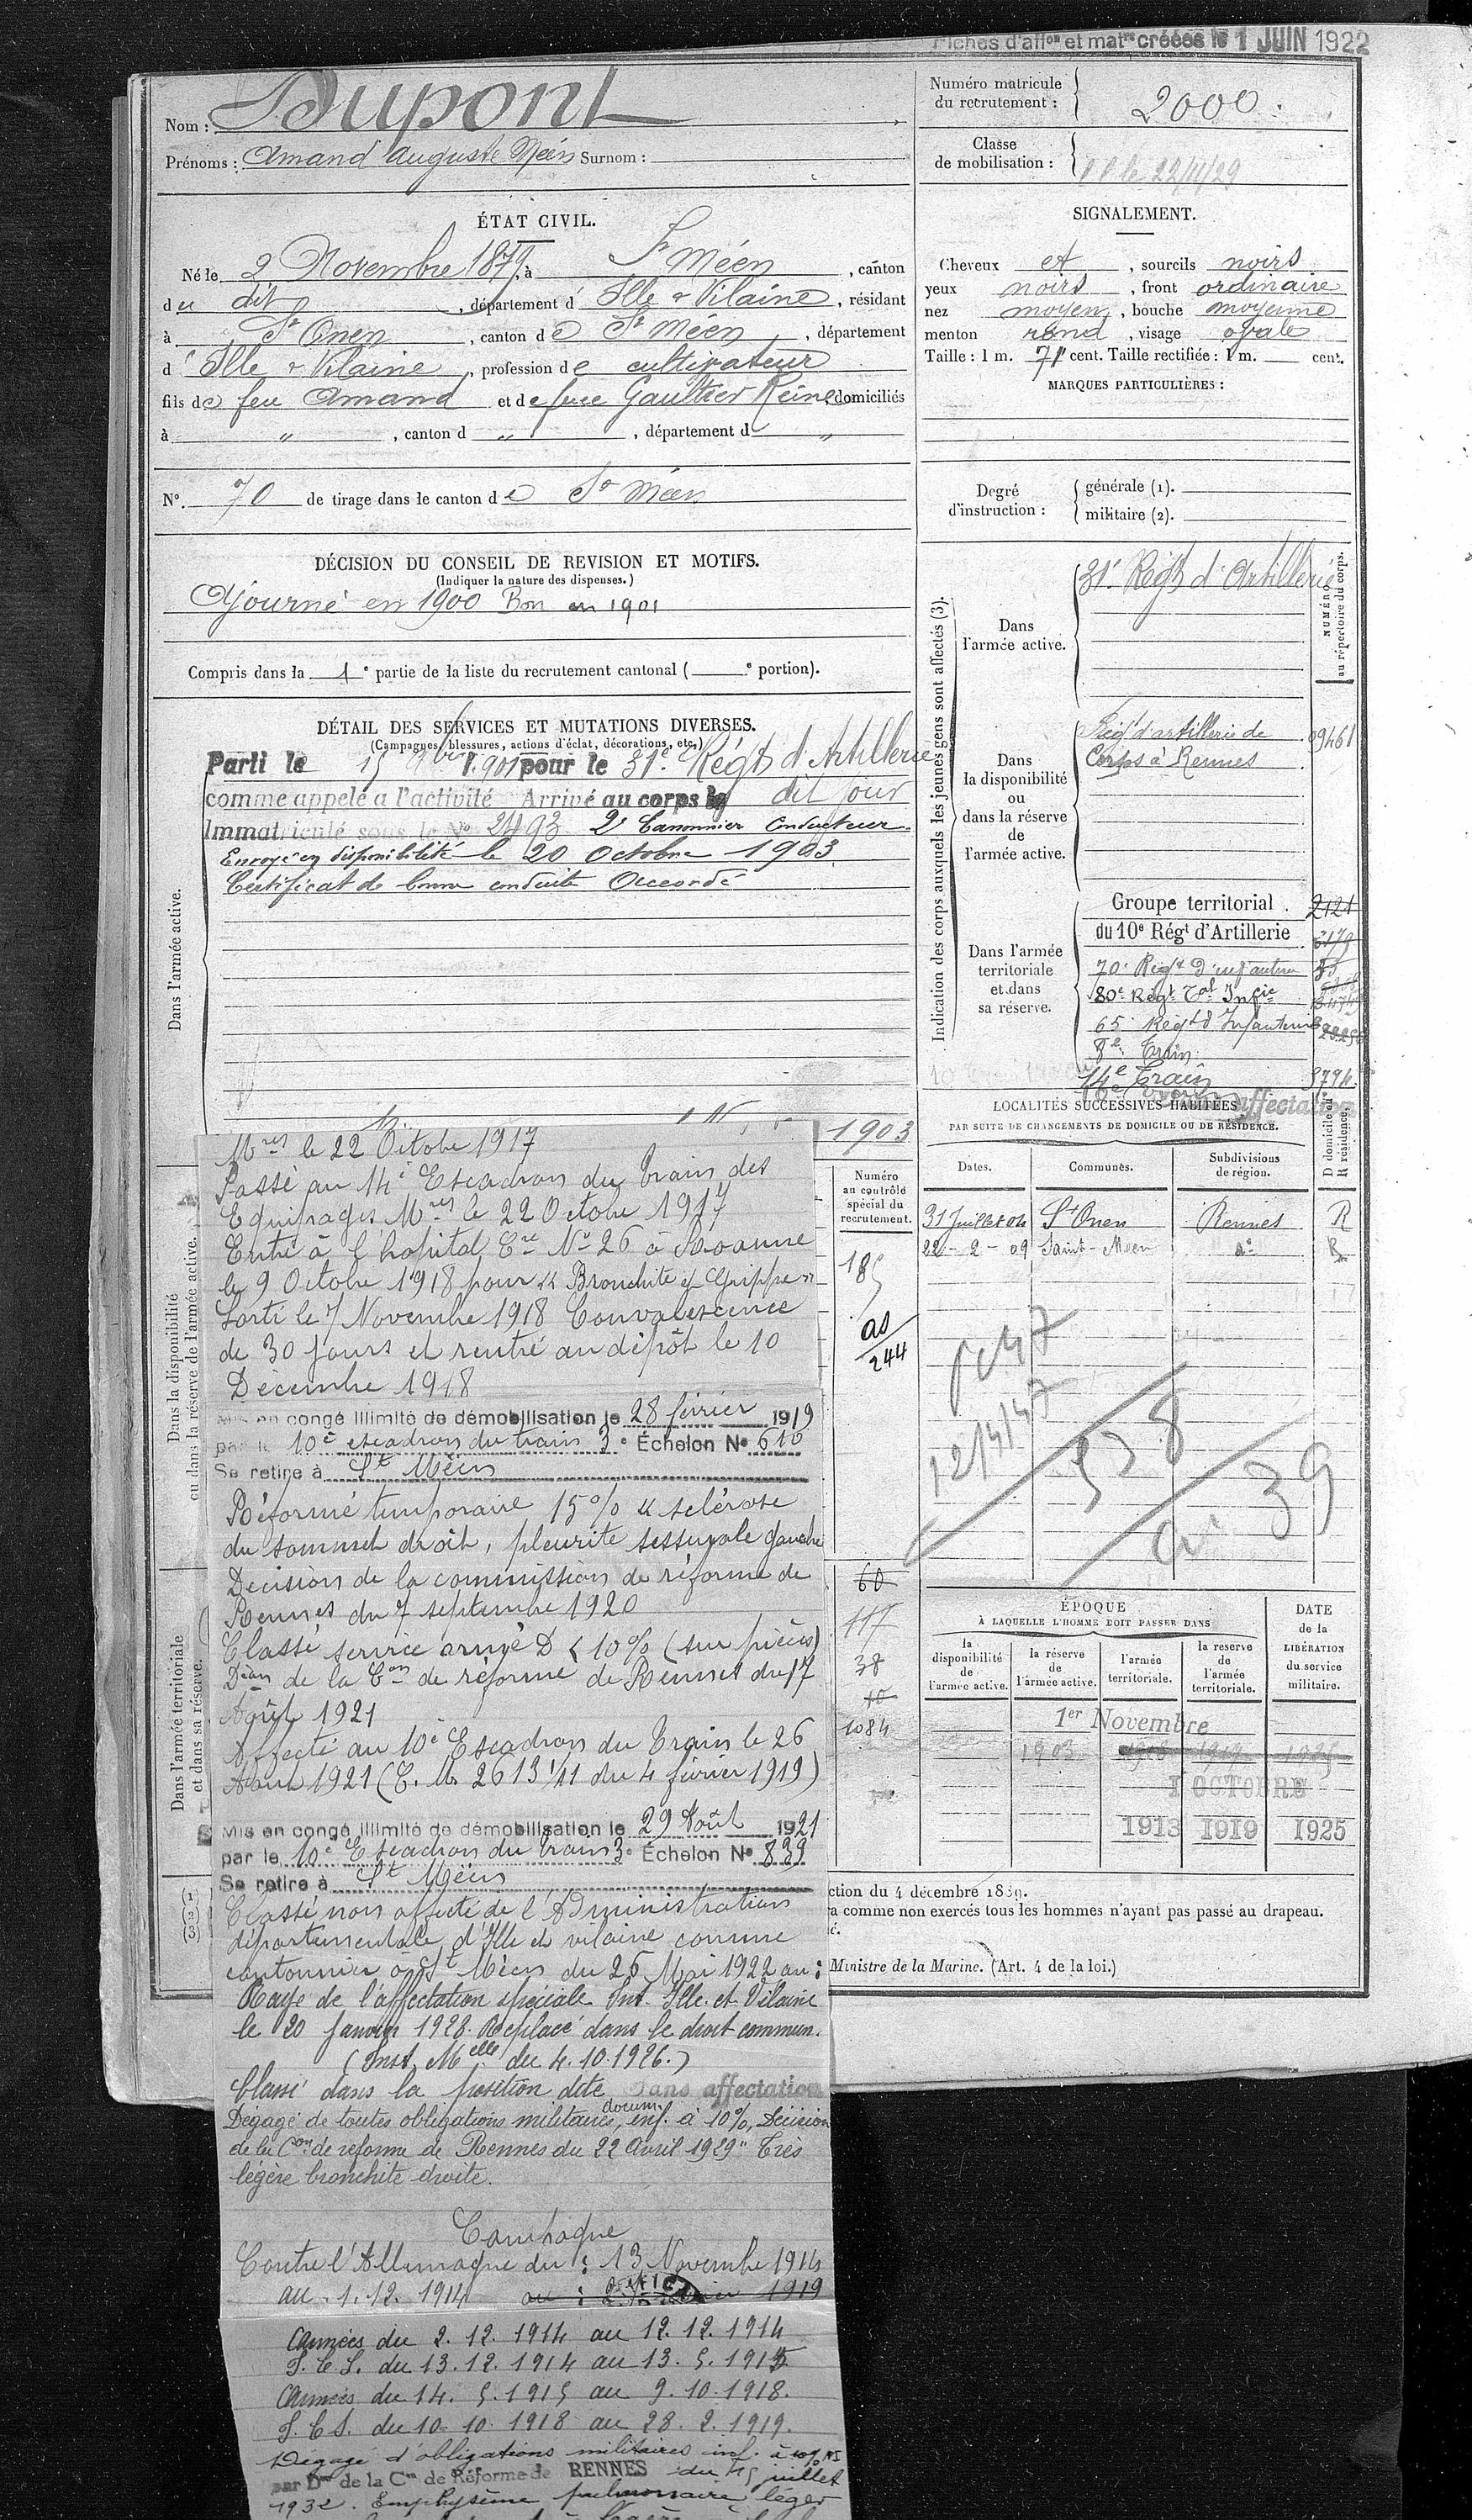 Fiches d'affon et matre créées le 1 JUIN 1922
Nom : Dupont
Prénoms : Amand Auguste Méen Surnom :
ÉTAT CIVIL.
Né le 2 Novembre 1879, à St Méen, canton
du dit, département d'Ille & Vilaine, résidant
à St Onen, canton de St Méen, département
d'Ille & Vilaine, profession de cultivateur
fils de feu Amand et de feue Gaultier Reine domiciliés
à " , canton d " , département d "
No. 70 de tirage dans le canton de St Méen
DÉCISION DU CONSEIL DE REVISION ET MOTIFS.
(Indiquer la nature des dispenses.)
Ajourné en 1900 Bon en 1901
Compris dans la 1e partie de la liste du recrutement cantonal ( e portion).
DÉTAIL DES SERVICES ET MUTATIONS DIVERSES.
(Campagnes, blessures, actions d'éclat, décorations, etc.)
Parti le 15 9bre 1901 pour le 31e Régt d'Artillerie
comme appelé à l'activité Arrivé au corps le dit jour
Immatriculé sous le No 2493 2e Canonnier Conducteur
Envoyé en disponibilité le 20 Octobre 1903
Certificat de bonne conduite Accordé
Dans l'armée active.
Numéro matricule
du recrutement : 2000.
Classe
de mobilisation :
22/11/29
SIGNALEMENT.
Cheveux et, sourcils noirs
yeux noirs, front ordinaire
nez moyen, bouche moyenne
menton rond, visage ovale
Taille : 1 m. 71 cent. Taille rectifiée : 1 m. cent.
MARQUES PARTICULIÈRES :
Degré
d'instruction :
générale (1).
militaire (2).
Indication des corps auxquels les jeunes gens sont affectés (3).
NUMÉRO
au répertoire du corps.
Dans
l'armée active.
31e Régt d'Artillerie
Dans
la disponibilité
ou
dans la réserve
de
l'armée active.
Régt d'artillerie de 09461
Corps à Rennes
Dans l'armée
territoriale
et dans
sa réserve.
Groupe territorial 2121
du 10e Régt d'Artillerie
70e Régt d'infanterie
80e Régt Tal Infie
65e Régt d'Infanterie
8e Train
14e Train
affectation
LOCALITÉS SUCCESSIVES HABITÉES
PAR SUITE DE CHANGEMENTS DE DOMICILE OU DE RÉSIDENCE.
Dates. Communes. Subdivisions
de région. D domicile ou
R résidence.
31 Juillet 04 St Onen Rennes R
22-2-09 Saint-Méen do R
1903
Numéro
au contrôle
spécial du
recrutement.
185
as
244
60
117
38
1084
Dans la disponibilité
ou dans la réserve de l'armée active.
Dans l'armée territoriale
et dans sa réserve.
Mres le 22 Octobre 1917
Passé au 14e Escadron du Train des
Equipages Mres le 22 Octobre 1917
Entré à l'hopital Cre No 26 à Roanne
le 9 Octobre 1918 pour « Bronchite & Grippe »
Sorti le 7 Novembre 1918 Convalescence
de 30 jours et rentré au dépôt le 10
Décembre 1918
Mis en congé illimité de démobilisation le 28 février 1919
par le 10e escadron du train 3e Échelon No 610
Se retire à St Méen
Réformé temporaire 15% « sclérose
du sommet droit, pleurite scissurale gauche
Décision de la commission de réforme de
Rennes du 7 septembre 1920
Classé service armé D < 10% (sur pièces)
Déon de la Con de réforme de Rennes du 17
Août 1921
Affecté au 10e Escadron du Train le 26
Août 1921 (C. M. 2613 1/11 du 4 février 1919)
Mis en congé illimité de démobilisation le 29 Août 1921
par le 10e Escadron du train 3e Échelon No 839
Se retire à St Méen
Classé non affecté de l'Administration
départementale d'Ille et vilaine comme
cantonnier à St Méen du 26 Mai 1922 au :
Rayé de l'affectation spéciale Sub. Ille et Vilaine
le 20 Janvier 1928. Replacé dans le droit commun.
(Inst. Melle du 4.10.1926.)
Classé dans la position dite Sans affectation
Dégagé de toutes obligations militaires, docum. inf. à 10%, Décision
de la Con de réforme de Rennes du 22 Avril 1929 " Très
légère bronchite droite.
Campagne
Contre l'Allemagne du : 13 Novembre 1914
au 1.12.1914 au : 1919
Années du 2.12.1914 au 12.12.1914
S.C.S. du 13.12.1914 au 13.5.1915
Années du 14.5.1915 au 9.10.1918.
S.C.S. du 10.10.1918 au 28.2.1919.
Dégagé d'obligations militaires inf. à 10%
par Don de la Con de Réforme de RENNES du 15 juillet
1932. Emphysème pulmonaire léger
ÉPOQUE
À LAQUELLE L'HOMME DOIT PASSER DANS
la
disponibilité
de
l'armée active.
la réserve
de
l'armée active.
l'armée
territoriale.
la reserve
de
l'armée
territoriale.
DATE
de la
LIBÉRATION
du service
militaire.
1er Novembre
1903
1 OCTOBRE
1913 1919 1925
(1)
(2)
(3)
ction du 4 décembre 1889.
a comme non exercés tous les hommes n'ayant pas passé au drapeau.
é.
Ministre de la Marine. (Art. 4 de la loi.)